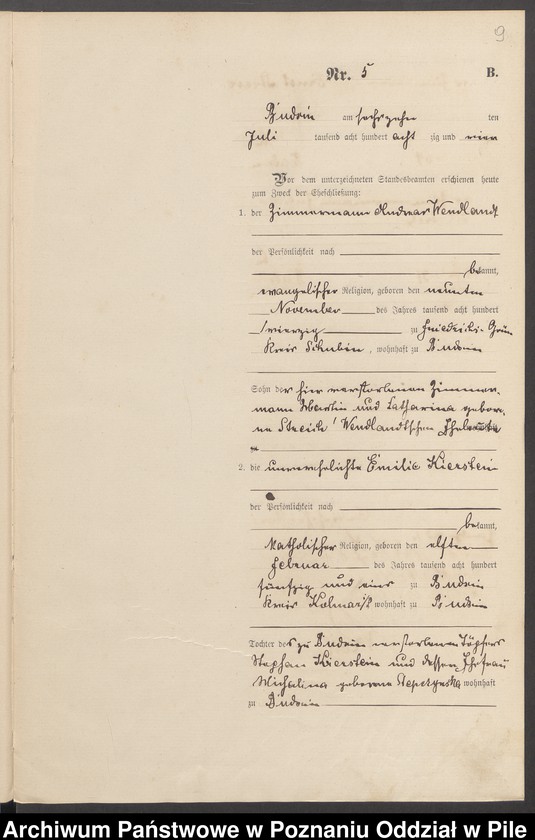 9
Nr. 5 B.
Budsin am sechszehn ten
Juli tausend acht hundert acht zig und vier
Vor dem unterzeichneten Standesbeamten erschienen heute
zum Zweck der Eheschließung:
1. der Zimmermann Andreas Wendlandt
der Persönlichkeit nach
bekannt,
evangelischer Religion, geboren den neunten
November des Jahres tausend acht hundert
vierzig zu Friedrichs-Grün
Kreis Schubin, wohnhaft zu Budsin
Sohn der hier verstorbenen Zimmer-
mann Martin und Catharina gebore-
ne Wendlandtschen Eheleute
2. die unverehelichte Emilie Kierstein
der Persönlichkeit nach
bekannt,
katholischer Religion, geboren den elften
Februar des Jahres tausend acht hundert
fünfzig und eins zu Budsin
Kreis Kolmar i/P wohnhaft zu Budsin
Tochter des zu Budsin verstorbenen Töpfers
Stephan Kierstein und dessen Ehefrau
Michalina geborene wohnhaft
zu Budsin
Archiwum Państwowe w Poznaniu Oddział w Pile